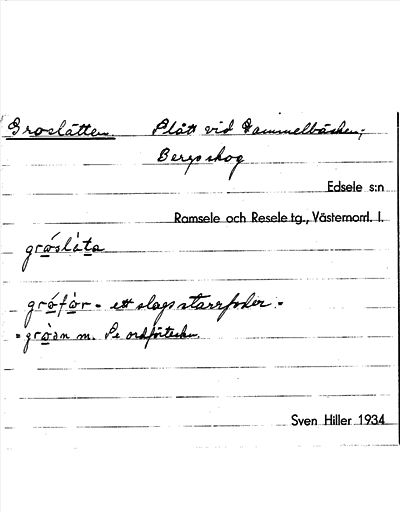 Groslåtten. Slått vid Gammelbäcken,
Bergs skog
Edsele s:n
Ramsele och Resele tg., Västernorrl. l.
gròslåta
gròfòr = ett slags starrfoder. =
= gròən m. Se ordförteckn.
Sven Hiller 1934